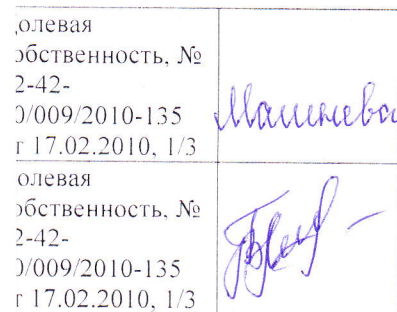 олевая
обственность, №
2-42-
0/009/2010-135
т 17.02.2010, 1/3
Машнева
олевая
обственность, №
2-42-
0/009/2010-135
т 17.02.2010, 1/3